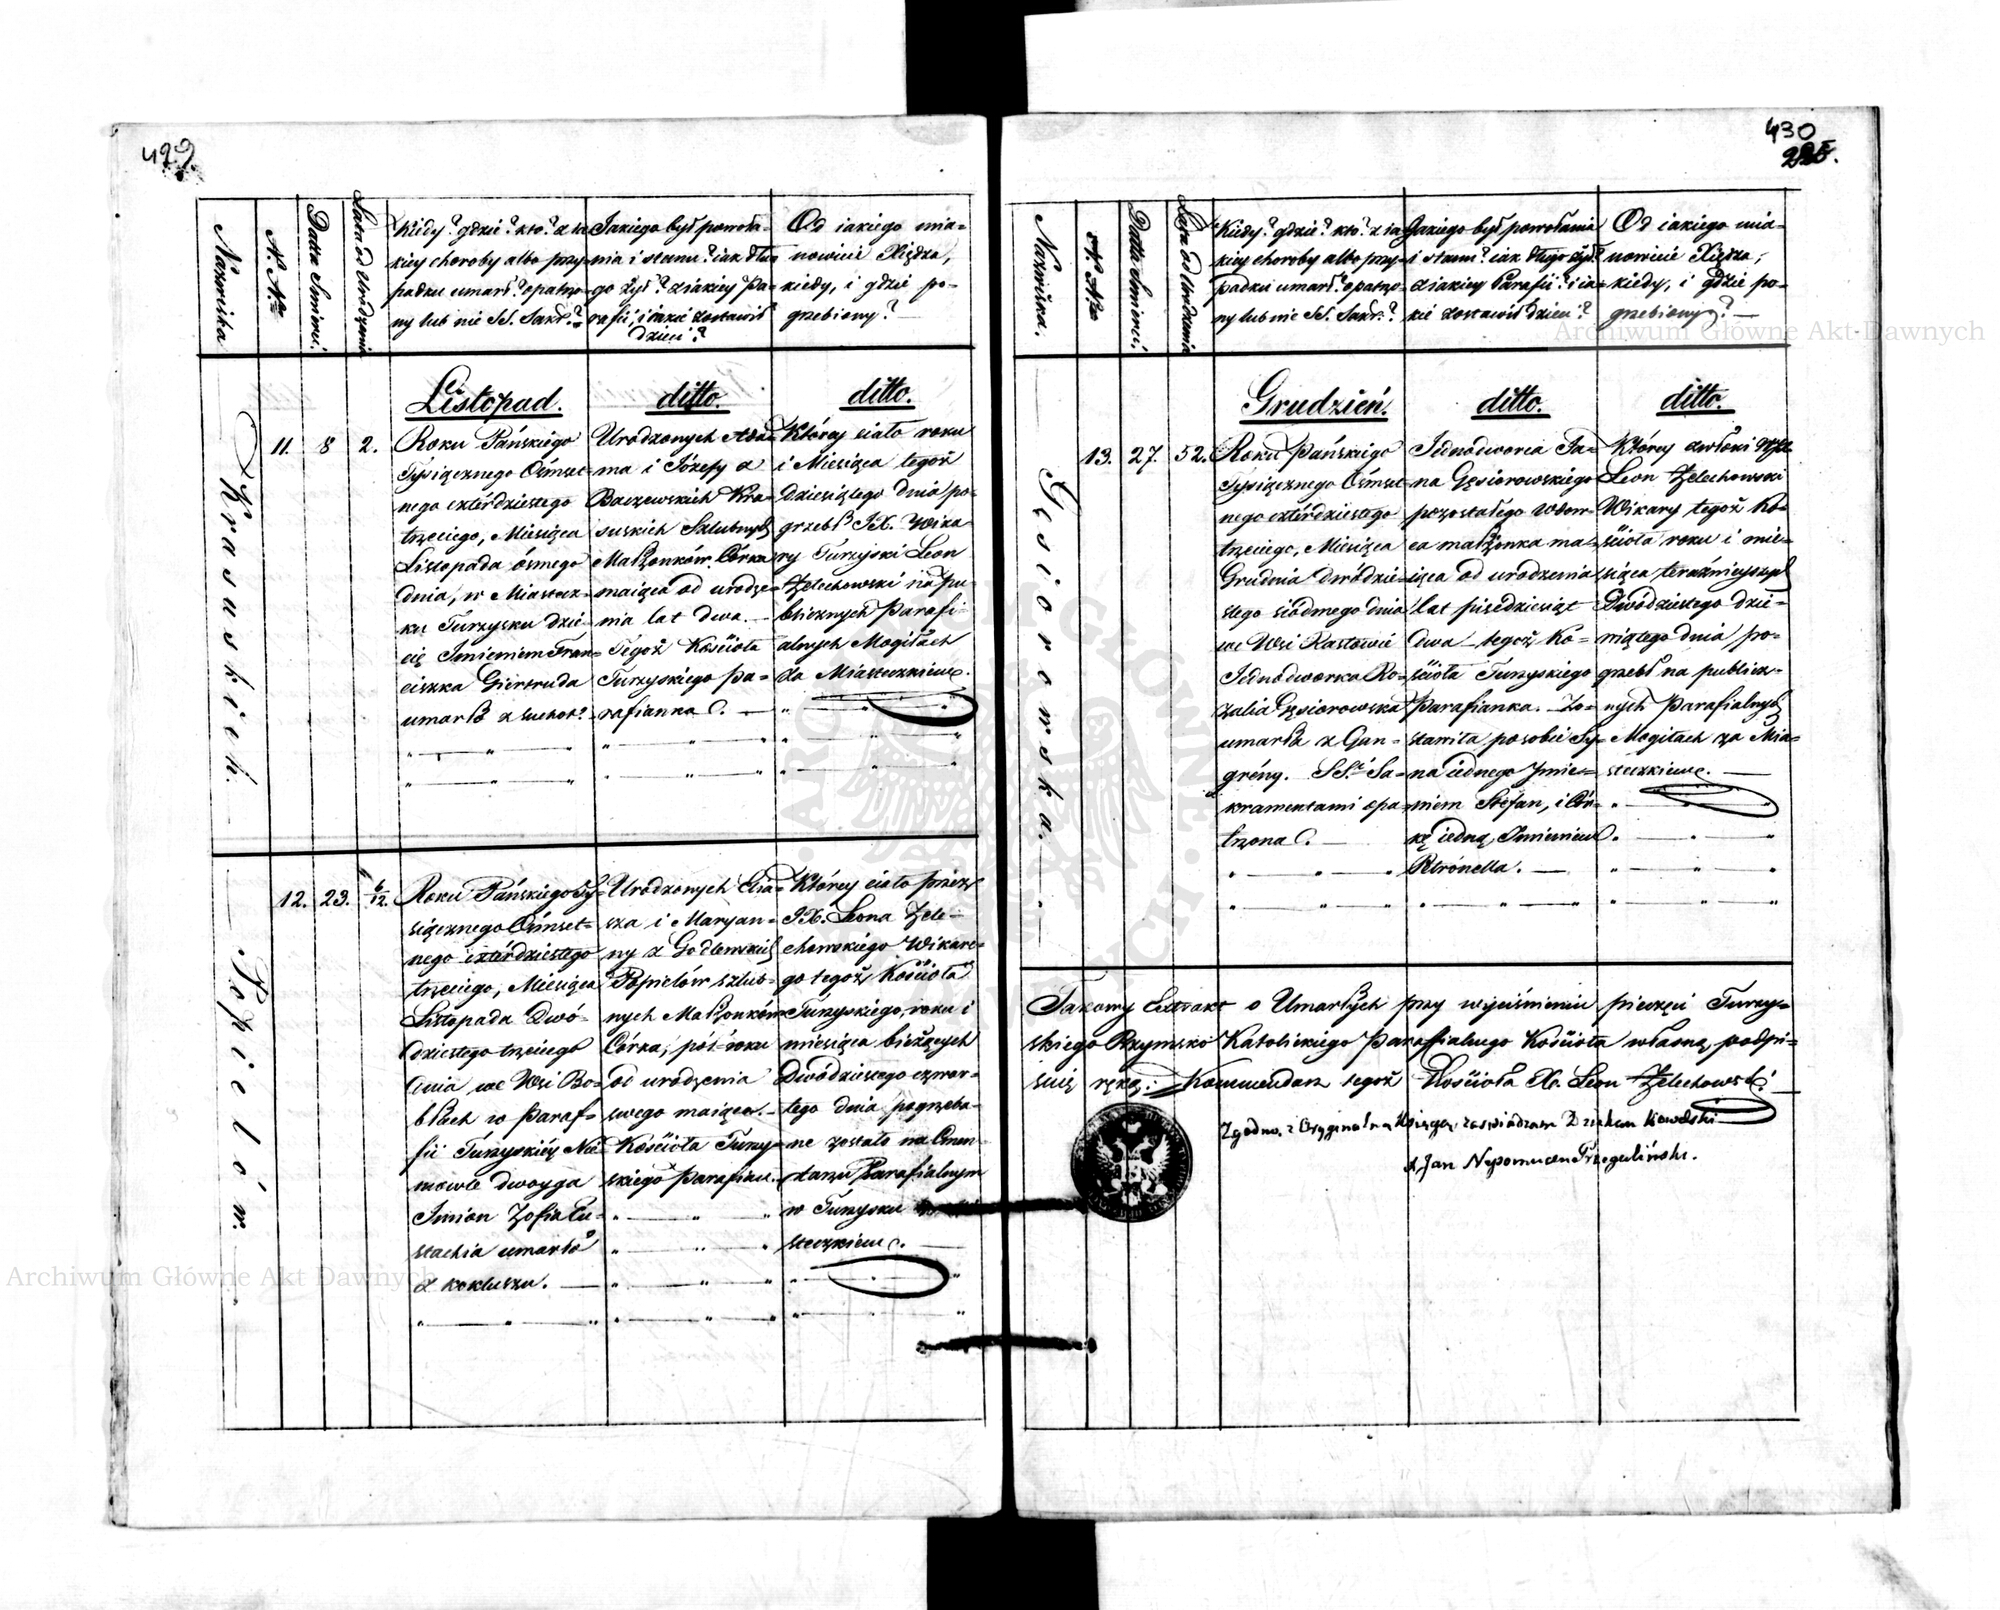 429
Nazwiska
N. Nro
Datta Śmierci
Lata od Urodzenia
Kiedy? gdzie? kto? z ia=
kiey choroby albo przy=
padku umarł? opatrzo=
ny lub nie SS. Sakr.?
Jakiego był powoła=
nia i stanu? iak dłu=
go żył? z iakiey Pa=
rafii; i iakie zostawił
dzieci?
Od iakiego mia=
nowicie Xiędza,
kiedy, i gdzie po=
grzebiony?
Krasuskich.
11.
8
2.
Listopad.
Roku Pańskiego
Tysiącznego Ośmset=
nego czterdziestego
trzeciego, Miesiąca
Listopada ósmego
dnia, w Miastecz=
ku Turzysku dzie=
cię Imieniem Fran=
ciszka Giertruda
umarła z suchot.
ditto.
Urodzonych Ada=
ma i Józefy z
Baczewskich Kra=
suskich Szlubnych
Małżonków Córka
maiąca od urodze=
nia lat dwa.
Tegoż Kościoła
Turzyskiego Pa=
rafianka.
ditto.
Którey ciało roku
i Miesiąca tegoż
Dziesiątego dnia po=
grzebł JX. Wika
ry Turzyski Leon
Żelechowski na pu=
blicznych Parafi=
alnych Mogiłach
za Miasteczkiem.
Popielów.
12.
23.
6/12.
Roku Pańskiego Ty=
siącznego Ośmset=
nego czterdziestego
trzeciego, Miesiąca
Listopada Dwó=
dziestego trzeciego
dnia we Wsi Bo=
błach w Paraf=
fii Turzyskiéy Nie
mowle dwoyga
Imion Zofia Eu=
stachia umarła
z kokluszu.
Urodzonych Elia=
sza i Maryan=
ny z Godlewskich
Popielów szlub=
nych Małżonków
Córka, pół=roku
od urodzenia
swego maiąca.
Kościoła Turzy=
skiego Parafian.
Którey ciało przez
JX. Leona Żele=
chowskiego Wikare=
go tegoż Kościoła
Turzyskiego, roku i
miesiąca bieżących
Dwódziestego czwar=
tego dnia pogrzeba=
ne zostało na Cmen
tarzu Parafialnym
w Turzysku
steczkiem.
430
Nazwiska.
N. Nro
Datta Śmierci
Lata od Urodzenia
Kiedy? gdzie? kto? z ia=
kiey choroby albo przy=
padku umarł? opatrzo=
ny lub nie SS. Sakr.?
Jakiego był powołania
i stanu? iak długo żył?
z iakiey Parafii? i ia=
kie zostawił dzieci?
Od iakiego mia=
nowicie Xiędza,
kiedy, i gdzie po=
grzebiony?
Gęsiorowska.
13.
27.
52.
Grudzień.
Roku Pańskiego
Tysiącznego Ośmset
nego czterdziestego
trzeciego, Miesiąca
Grudnia dwódzie=
stego siódmego dnia
we Wsi Kastowie
Jednodworka Ro=
zalia Gęsiorowska
umarła z Gan=
grény. SS. Sa=
kramentami opa=
trzona.
ditto.
Jednodworca Ja=
na Gęsiorowskiego
pozostałego wdow=
ca małżonka ma=
iąca od urodzenia
lat piędziesiąt
dwa tegoż Ko=
ścioła Turzyskiego
Parafianka. Zo=
stawiła po sobie Sy=
na iednego Jmie=
niem Stefan, i Cór=
kę iedną Imieniem
Petronella.
ditto.
Którey zwłoki
Leon Żelechowski
Wikary tegoż Ko=
ścioła roku i mie=
siąca teraźnieyszych
Dwódziestego dzie=
wiątego dnia po=
grzebł na publicz=
nych Parafialnych
Mogiłach za Mia=
steczkiem.
Takowy Extrakt o Umarłych przy wyciśnieniu pieczęci Turzy=
skiego Rzymsko Katolickiego Parafialnego Kościoła własną podpi=
suię ręką: Kommendarz tegoż Kościoła X. Leon Żelechowski
Zgodno z Oryginalną Xsięgą zaświadczam Dziekan Kowelski
X. Jan Nepomucen Przegaliński.
Archiwum Główne Akt Dawnych
Archiwum Główne Akt Dawnych